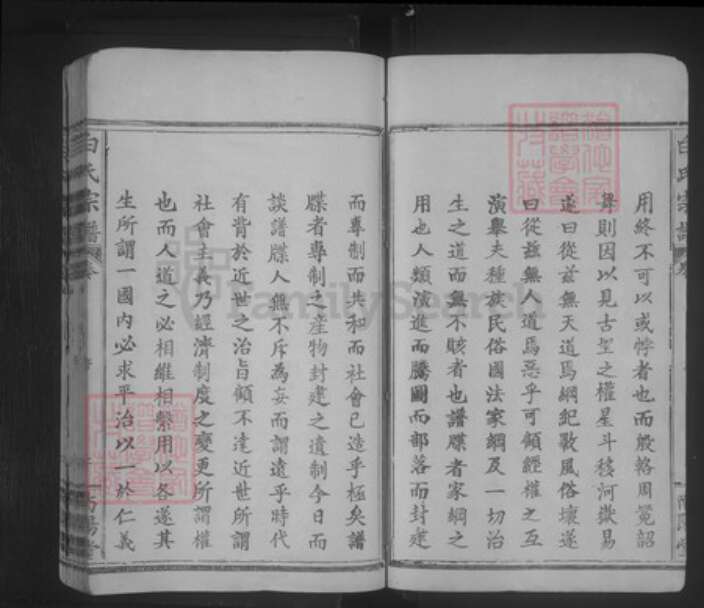 用終不可以或悖者也而殷輅周冕韶
舜則因以見古聖之權星斗移河嶽易
遂曰從茲無天道焉綱紀斁風俗壞遂
曰從茲無人道焉惡乎可顧經權之互
演舉夫種族民俗國法家綱及一切治
生之道而無不賅者也譜牒者家綱之
用也人類演進而騰圖而部落而封建
而專制而共和而社會已造乎極矣譜
牒者專制之產物封建之遺制今日而
談譜牒人無不斥為妄而謂遠乎時代
有背於近世之治旨顧不達近世所謂
社會主義乃經濟制度之變更所謂權
也而人道之必相維相繫用以各遂其
生所謂一國內必求平治以一於仁義
白氏宗譜
FamilySearch